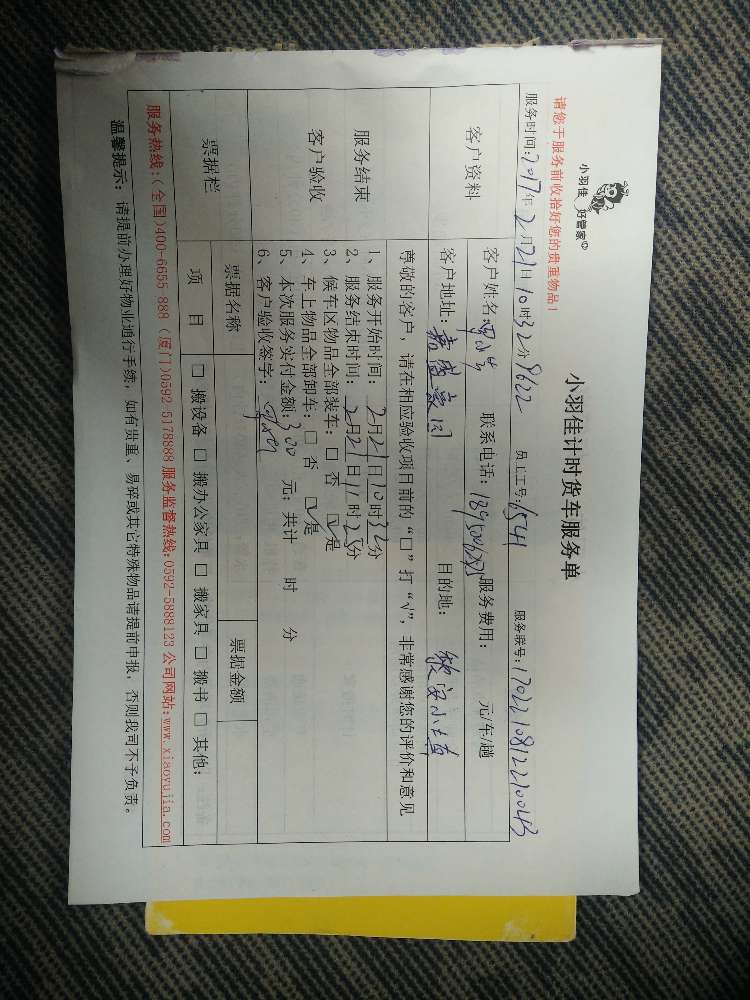 小羽佳 好管家
小羽佳计时货车服务单
请您于服务前收拾好您的贵重物品！
服务时间：2017年2月21日10时32分 9622 员工工号：6541 服务联号：1702210812210043
客户资料
客户姓名： 联系电话： 服务费用： 元/车/趟
客户地址：嘉盛豪园 目的地：
尊敬的客户，请在相应验收项目前的“□”打“√”，非常感谢您的评价和意见
服务结束
客户验收
1、服务开始时间：2月21日10时32分
2、服务结束时间：2月21日11时25分
3、候车区物品全部装车：□ 否 ☑是
4、车上物品全部卸车：□ 否 ☑是
5、本次服务实付金额：300 元；共计 时 分
6、客户验收签字：
票据栏
票据名称 票据金额
项 目 □ 搬设备 □ 搬办公家具 □ 搬家具 □ 搬书 □ 其他：
服务热线：(全国)400-6655 888 (厦门)0592-5178888 服务监督热线：0592-5888123 公司网站：www.xiaoyujia.com
温馨提示：请提前办理好物业通行手续，如有贵重、易碎或其它特殊物品请提前申报，否则我司不予负责。